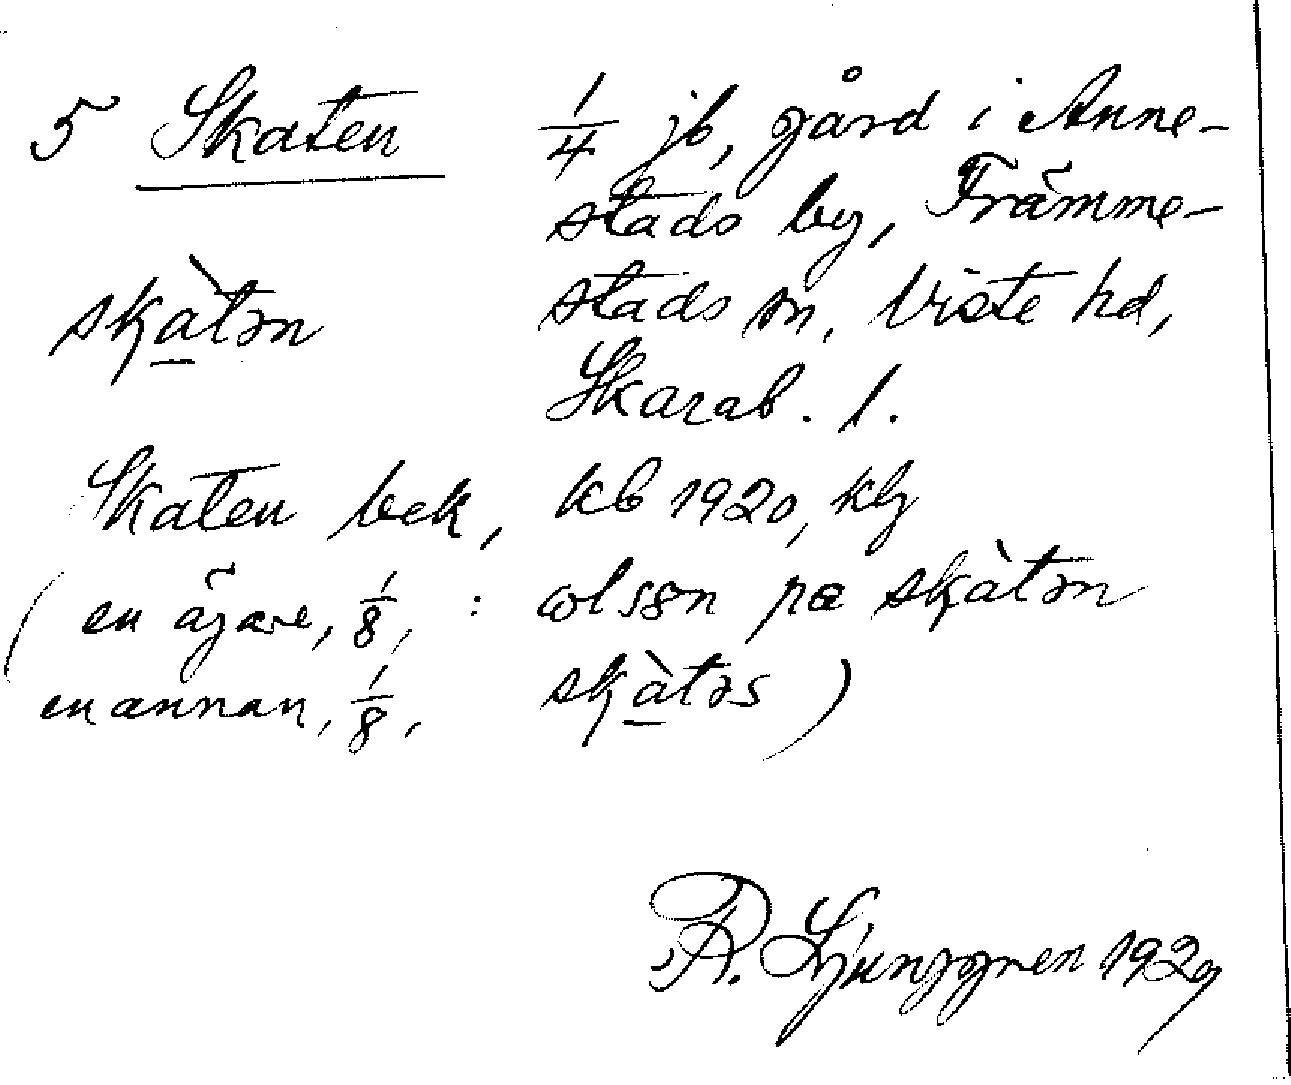 5 Skaten 1/4 jb, gård i Anne-
stads by, Främme-
skàtən stads sn, Viste hd,
Skarab. l.
Skaten bek, kb 1920, klj
(en ägare, 1/8, : olsən pæ skàtən
en annan, 1/8, skàtəs)
R. Ljunggren 1929